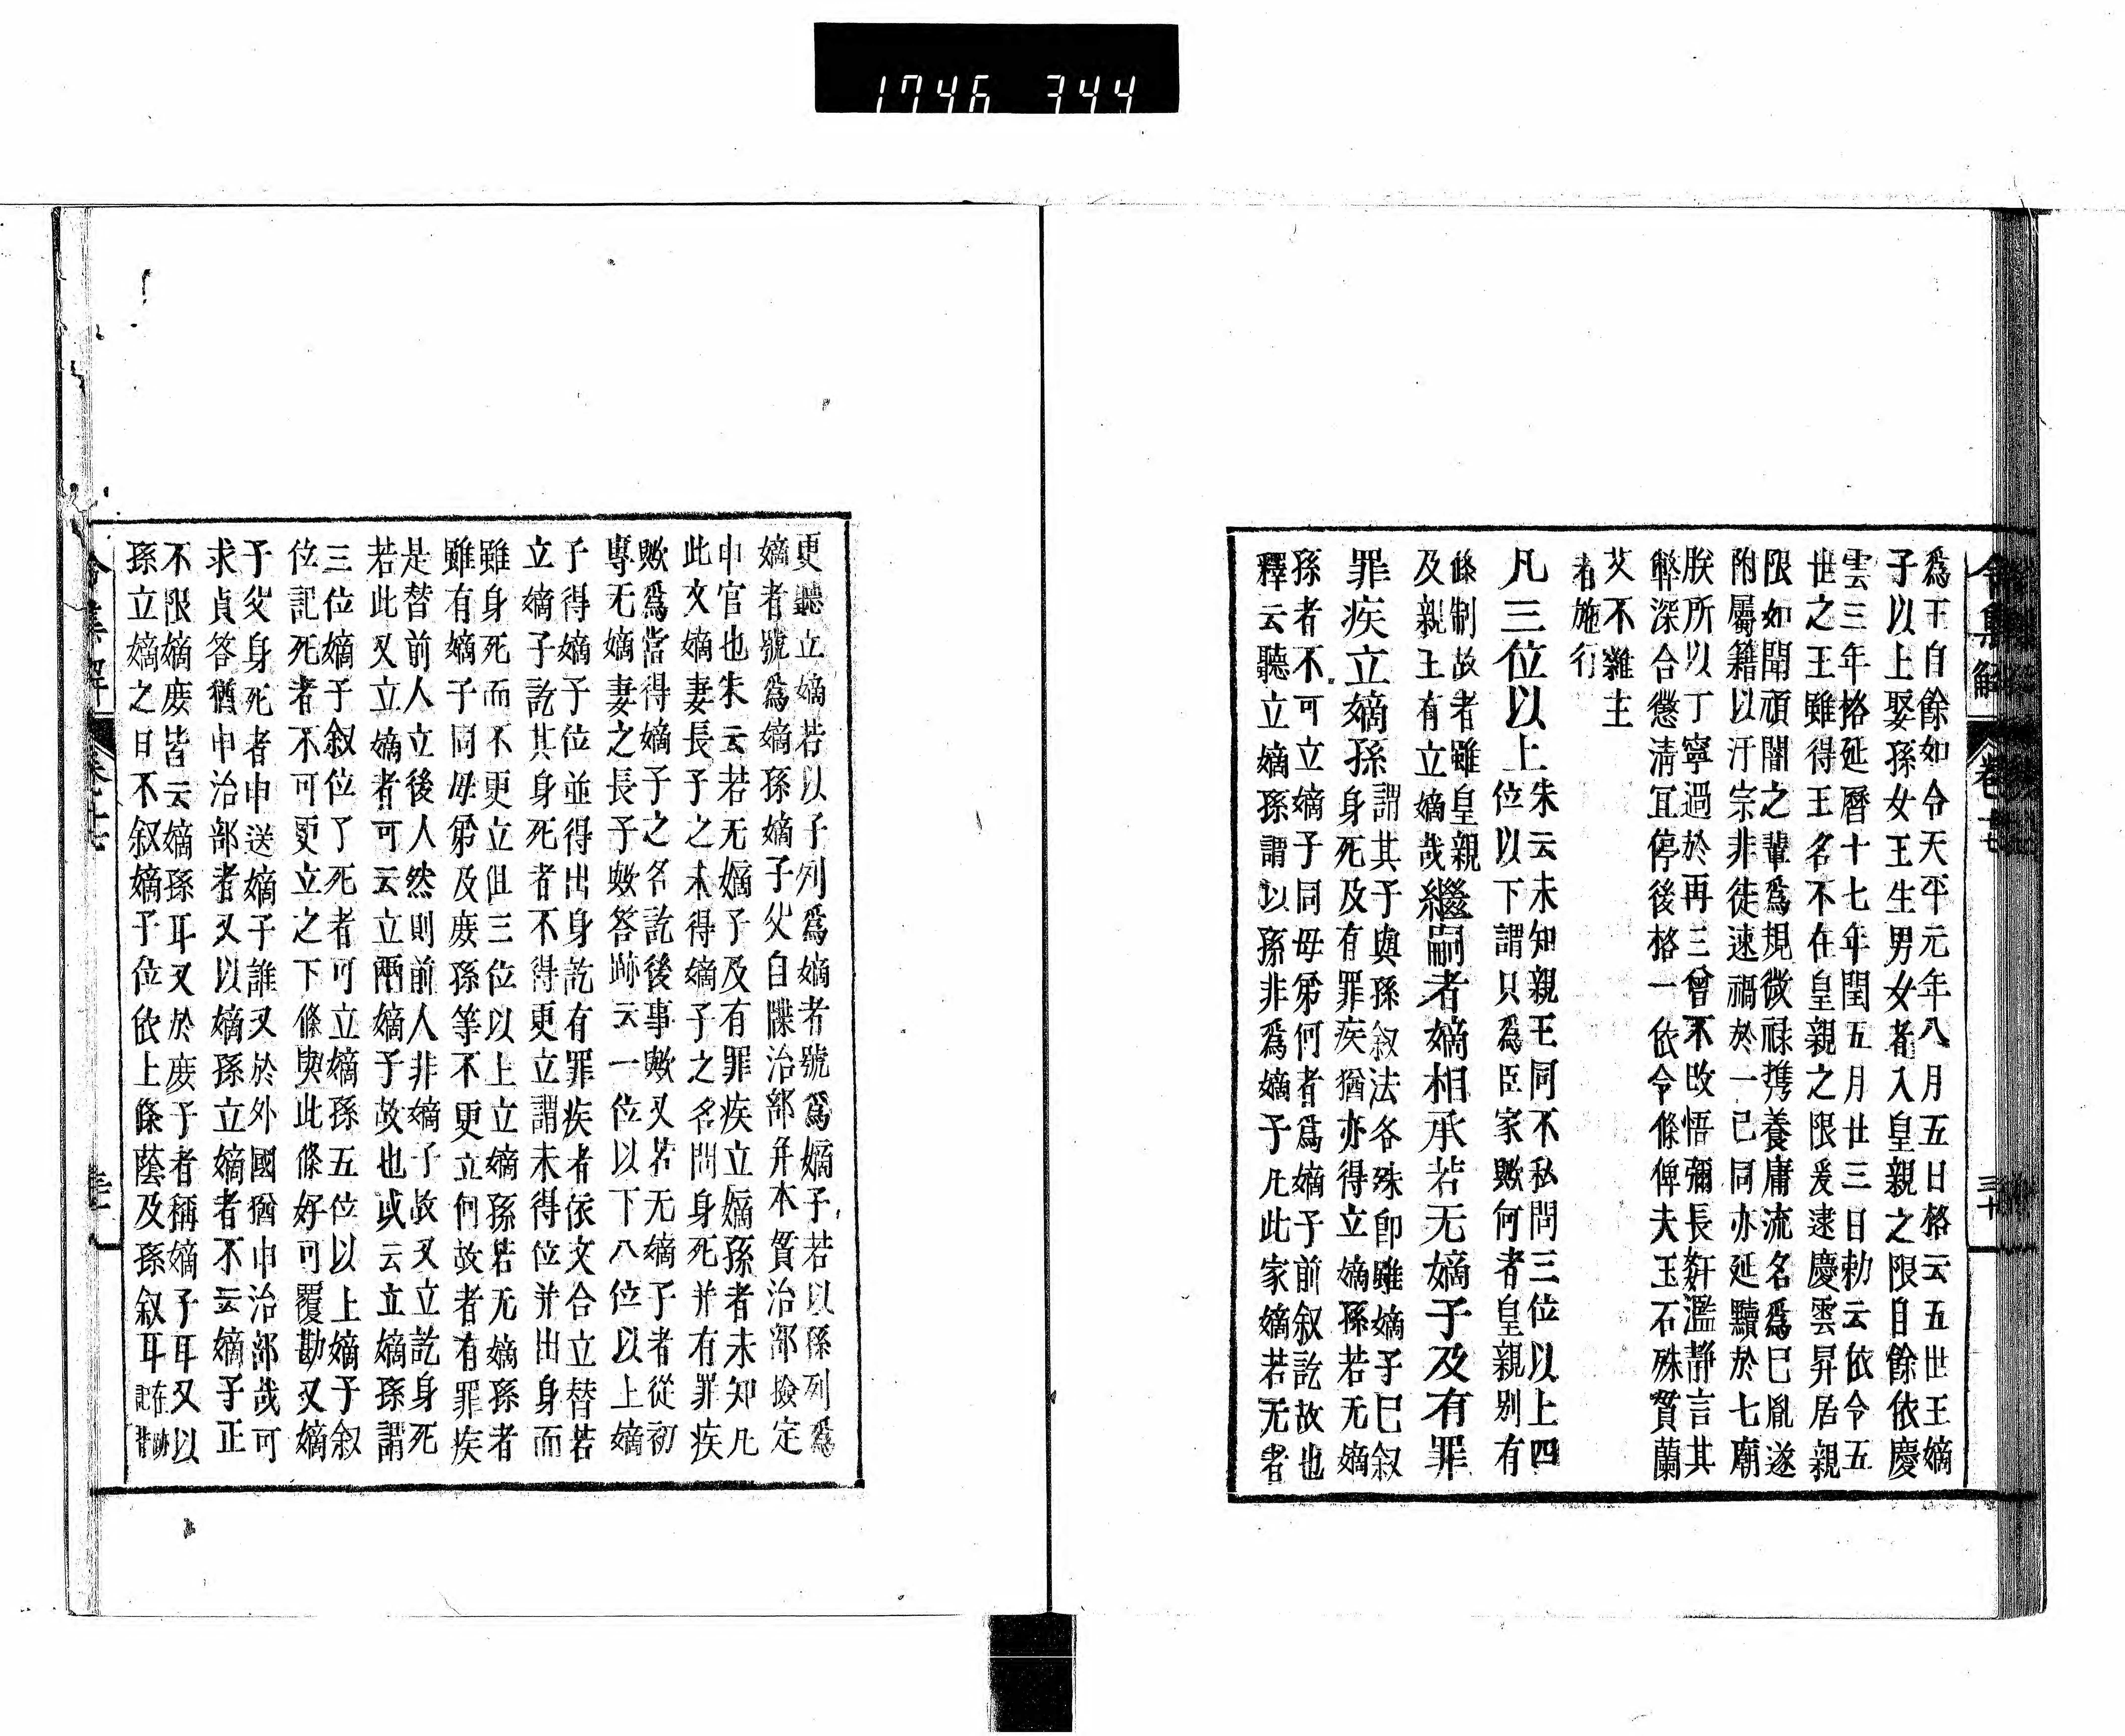 1746 344
令集解
卷十七
三十
爲王自餘如令天平元年八月五日格云五世王嫡
子以上娶孫女王生男女者入皇親之限自餘依慶
雲三年格延曆十七年閏五月廿三日勅云依令五
世之王雖得王名不在皇親之限爰逮慶雲昇居親
限如聞頑闇之輩爲規微祿携養庸流名爲已胤遂
附屬籍以汙宗非徒速禍於一己同亦延黷於七廟
朕所以丁寧過於再三曾不改悟彌長奸濫静言其
弊深合懲淸冝停後格一依令條俾夫玉石殊貿蘭
艾不雜主
者施行
凡三位以上
朱云未知親王同不私問三位以上四
位以下謂只爲臣家歟何者皇親別有
條制故者雖皇親
及親王有立嫡哉
繼嗣者嫡相承若无嫡子及有罪
罪疾立嫡孫
謂其子與孫叙法各殊卽雖嫡子已叙
身死及有罪疾猶亦得立嫡孫若无嫡
孫者不可立嫡子同母弟何者爲嫡子前叙訖故也
釋云聽立嫡孫謂以孫非爲嫡子凡此家嫡若无者
更聽立嫡若以子列爲嫡者號爲嫡子若以孫列爲
嫡者號爲嫡孫嫡子父自牒治部幷本貫治部撿定
申官也朱云若无嫡子及有罪疾立嫡孫者未知凡
此文嫡妻長子之未得嫡子之名問身死并有罪疾
歟爲當得嫡子之名訖後事歟又若无嫡子者從初
專无嫡妻之長子歟答跡云一位以下八位以上嫡
子得嫡子位並得出身訖有罪疾者依文合立替若
立嫡子訖其身死者不得更立謂未得位并出身而
雖身死而不更立但三位以上立嫡孫若无嫡孫者
雖有嫡子同母弟及庶孫等不更立何故者有罪疾
是替前人立後人然則前人非嫡子故又立訖身死
若此又立嫡者可云立兩嫡子故也或云立嫡孫謂
三位嫡子叙位了死者可立嫡孫五位以上嫡子叙
位記死者不可更立之下條與此條好可覆勘又嫡
子父身死者申送嫡子誰又於外國猶申治部哉可
求貞答猶申治部者又以嫡孫立嫡者不云嫡子正
不限嫡庶皆云嫡孫耳又於庶子者稱嫡子耳又以
孫立嫡之日不叙嫡子位依上條蔭及孫叙耳
在跡
記背